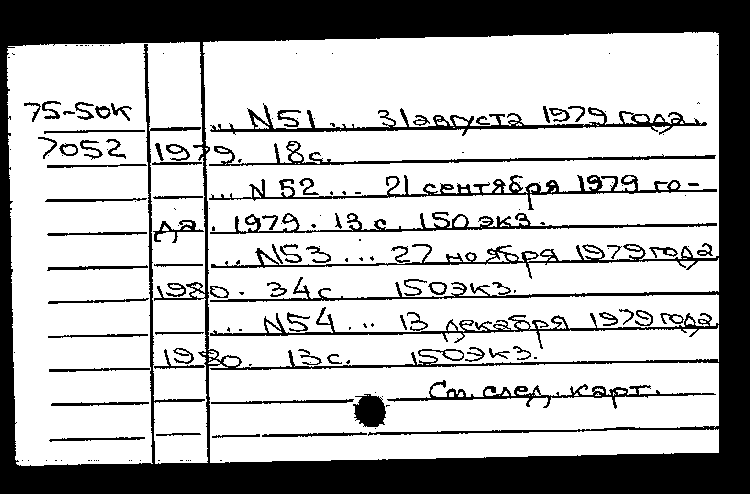 75-50к
... N51 ... 31 августа 1979 года.
7052 1979. 18с.
... N52 ... 21 сентября 1979 го-
да. 1979. 13 с. 150 экз.
... N53 ... 27 ноября 1979 года
1980. 34с. 150экз.
... N54 ... 13 декабря 1979 года.
1980. 13с. 150экз.
См. след. карт.